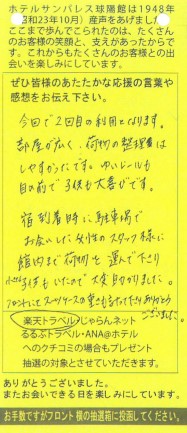 ホテルサンパレス球陽館は1948年
(昭和23年10月)産声をあげました
ここまで歩んでこられたのは、たくさん
のお客様の笑顔と、支えがあったからで
す。これからもたくさんのお客様との出
会いを楽しみにしています。
ぜひ皆様のあたたかな応援の言葉や
感想をお伝え下さい。
今回で2回目の利用となります。
部屋が広く、荷物の整理には
しやすかったです。ゆいレールも
目の前で子供も大喜びです。
宿到着時に駐車場で
お会いした女性のスタッフ様に
館内まで荷物を運んで下さり
小さい子供もいたので大変助かりました。
フロントにてスーツケースの
ありがとう
ございました。
楽天トラベル・じゃらんネット
るるぶトラベル・ANA@ホテル
へのクチコミの場合もプレゼント
抽選の対象とさせていただきます。
ありがとうございました。
またお会いできる日を楽しみにしています。
お手数ですがフロント横の抽選箱に投函してください。